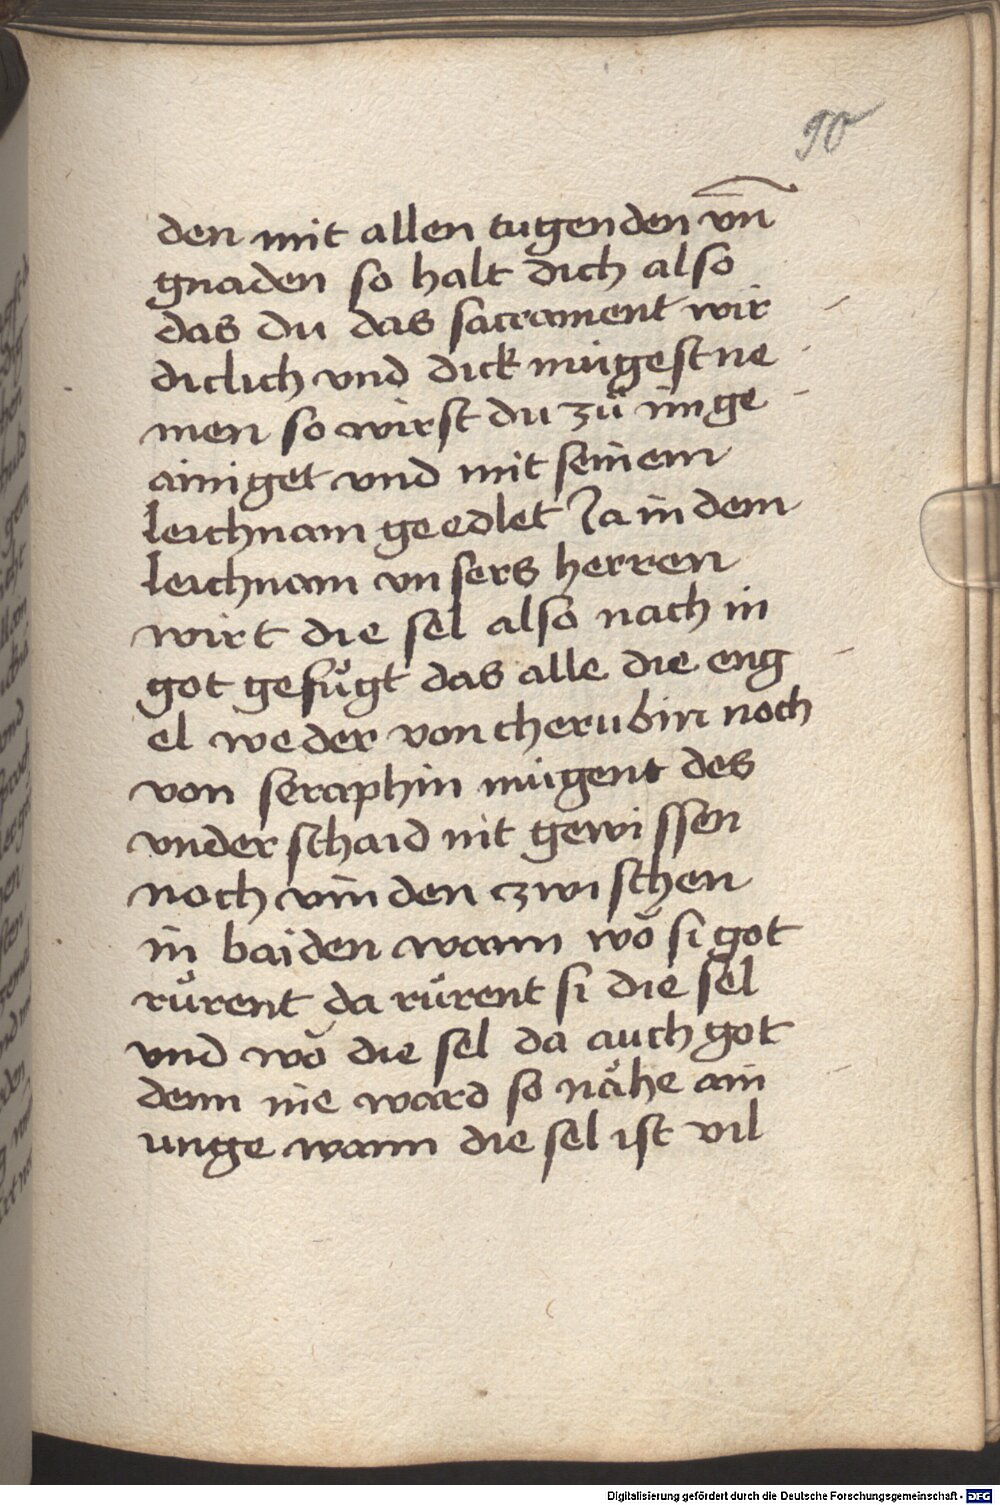 90
den mit allen tugenden vn̄
gnaden so halt dich also
das du das sacrament wir
diclich vnd dick mugest ne
men so wirst du zů im ge
ainiget vnd mit seinem
leichnam geedlet Ja in dem
leichnam vnsers herren
wirt die sel also nach in
got gefůgt das alle die eng
el weder von cherubin noch
von seraphin mugent des
vnderschaid nit gewissen
noch vinden zwischen
in baiden wann wŏ si got
růrent da růrent si die sel
vnd wŏ die sel da auch got
denn nie ward so nåhe ain
unge wann die sel ist vil
Digitalisierung gefördert durch die Deutsche Forschungsgemeinschaft - DFG